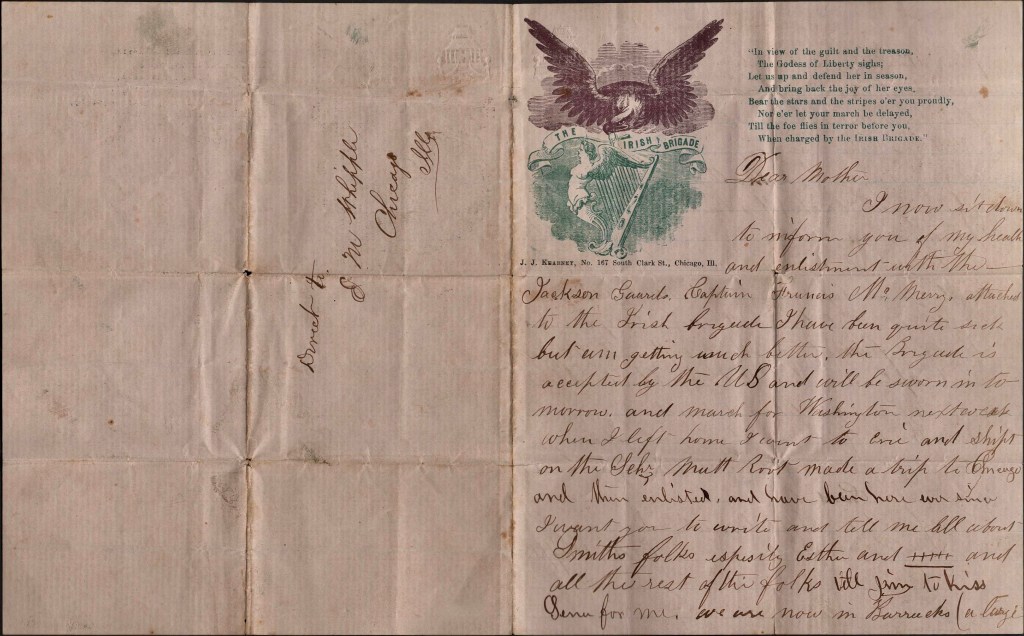 Direct to
E M Whipple
Chicago
Ills
THE IRISH BRIGADE
J. J. Kearney, No. 167 South Clark St., Chicago, Ill.
"In view of the guilt and the treason,
The Godess of Liberty sighs;
Let us up and defend her in season,
And bring back the joy of her eyes.
Bear the stars and the stripes o'er you proudly,
Nor e'er let your march be delayed,
Till the foe flies in terror before you,
When charged by the Irish Brigade."
Dear Mother
I now sit down
to inform you of my health
and enlistment with the
Jackson Guards. Captain Francis attached
to the Irish brigade I have been quite sick
but am getting much better. the Brigade is
accepted by the US and will be sworn in to
morrow. and march for Washington next week
when I left home I went to Erie and shipt
on the Schr Mutt Root made a trip to Chicago
and then enlisted. and have been here ever since
I want you to write and tell me all about
Smiths folks espesily Esther and and
all the rest of the folks tell Jim to kiss
for me. we are now in Barracks (a large